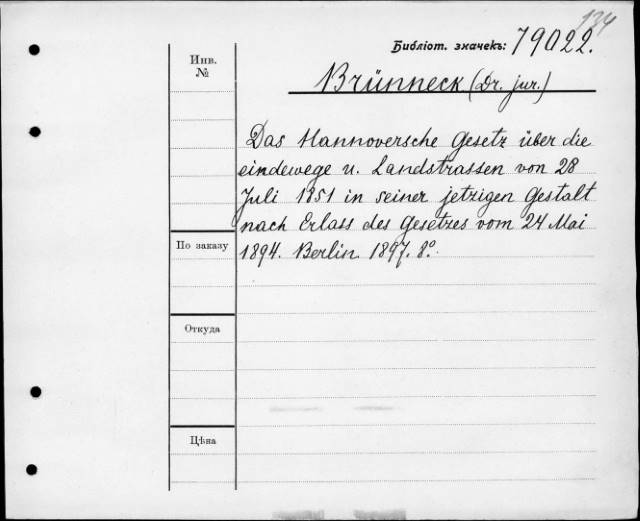 134
Библіот. значекъ: 79022.
Инв.
№
Brünneck (Dr. jur.)
Das Hannoversche Gesetz über die
eindewege u. Landstrassen von 28
Juli 1851 in seiner jetzigen Gestalt
nach Erlass des Gesetzes vom 24 Mai
1894. Berlin 1897. 8º.
По заказу
Откуда
Цѣна